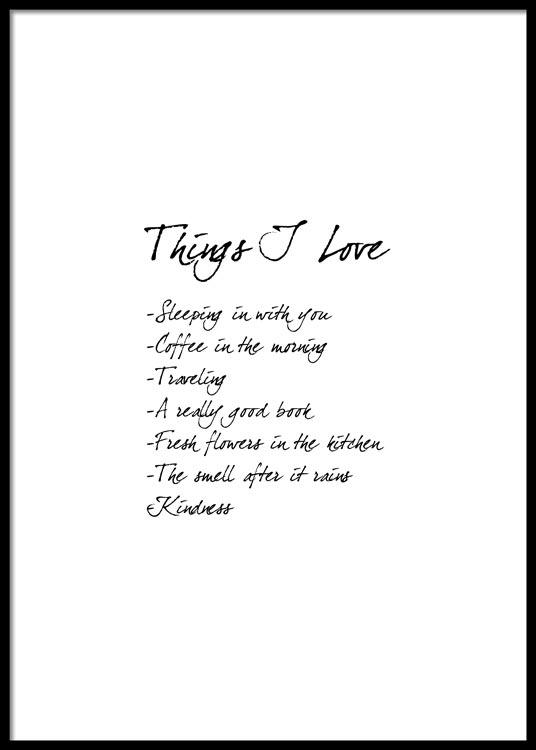 Things I Love
-Sleeping in with you
-Coffee in the morning
-Traveling
-A really good book
-Fresh flowers in the kitchen
-The smell after it rains
-Kindness